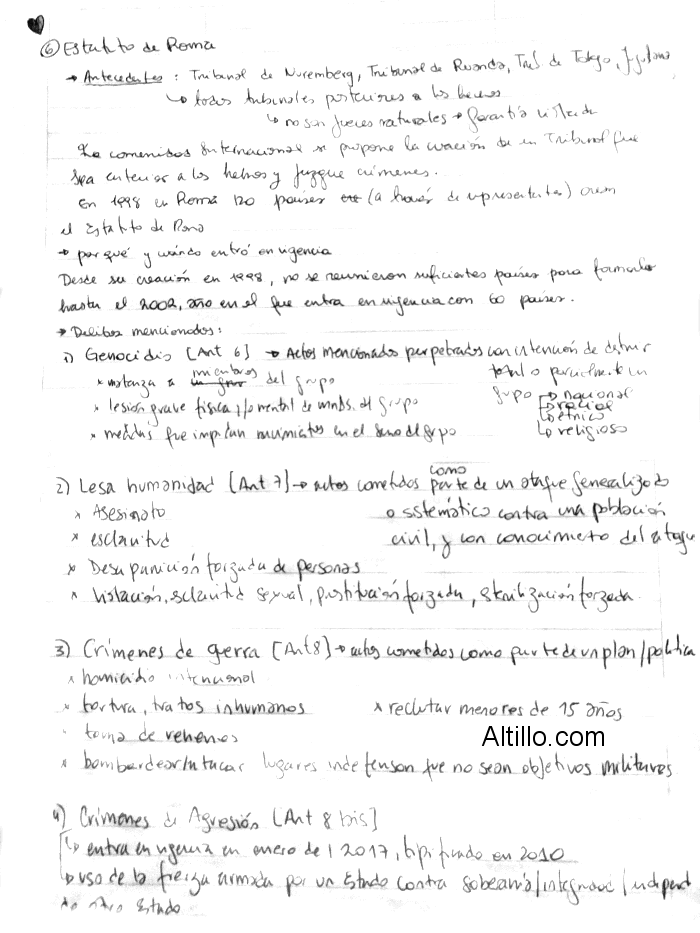 ⑥ Estatuto de Roma
→ Antecedentes: Tribunal de Nuremberg, Tribunal de Ruanda, Trib de Tokyo, Yugoslavia
↳ todos tribunales posteriores a los hechos
↳ no son jueces naturales → garantía violada
La comunidad internacional se propone la creación de un Tribunal que
sea anterior a los hechos y juzgue crímenes.
En 1998 en Roma 120 países (a través de representantes) crean
el Estatuto de Roma
→ por qué y cuándo entró en vigencia
Desde su creación en 1998, no se reunieron suficientes países para formarlo
hasta el 2002, año en el que entra en vigencia con 60 países.
→ Delitos mencionados:
1) Genocidio [Art 6] → Actos mencionados perpetrados con intención de destruir
total o parcialmente un
grupo ↳ nacional
↳ racial
↳ étnico
↳ religioso
* matanza a miembros del grupo
* lesión grave física y/o mental de mmbs. del grupo
* medidas que impidan nacimientos en el seno del grupo
2) Lesa humanidad [Art 7] → actos cometidos como parte de un ataque generalizado
o sstemático contra una población
civil, y con conocimiento del ataque
* Asesinato
* esclavitud
* Desaparición forzada de personas
* Violación, esclavitud sexual, prostitución forzada, esterilización forzada.
3) Crímenes de gerra [Art 8] → actos cometidos como parte de un plan/política
* homicidio intencional
* tortura, tratos inhumanos * reclutar menores de 15 años
* toma de rehenes
Altillo.com
* bombardear/atacar lugares indefenson que no sean objetivos militares
4) Crímenes de Agresión [Art 8 bis]
↳ entra en vigencia en enero del 2017, tipificado en 2010
↳ uso de la fuerza armada por un Estado contra soberanía/integridad/independ
de otro Estado